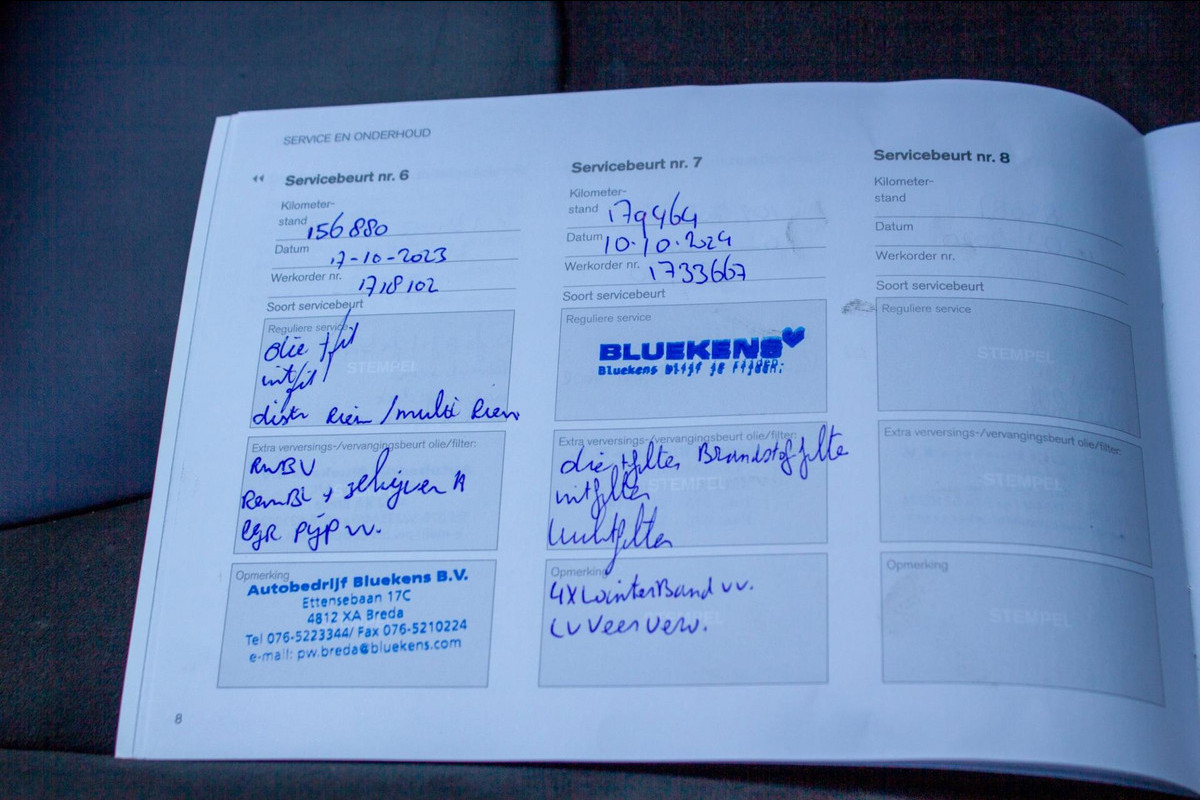 SERVICE EN ONDERHOUD
Servicebeurt nr. 6
Kilometer-
stand 156880
Datum 17-10-2023
Werkorder nr. 1718102
Soort servicebeurt
Reguliere service
olie + fil
STEMPEL
intfil
distr Riem / multi Riem
Extra verversings-/vervangingsbeurt olie/filter:
RWBV
RemBL + schijven A
EGR pijp vv.
Opmerking
Autobedrijf Bluekens B.V.
Ettensebaan 17C
4812 XA Breda
Tel 076-5223344/ Fax 076-5210224
e-mail: pw.breda@bluekens.com
8
Servicebeurt nr. 7
Kilometer-
stand 179464
Datum 10.10.2024
Werkorder nr. 1733667
Soort servicebeurt
Reguliere service
BLUEKENS
Bluekens blijf je rijden.
Extra verversings-/vervangingsbeurt olie/filter:
olie + filter Brandstoffilter
STEMPEL
intfilter
Luchtfilter
Opmerking
4x WinterBand vv.
STEMPEL
LV Veer verv.
Servicebeurt nr. 8
Kilometer-
stand
Datum
Werkorder nr.
Soort servicebeurt
Reguliere service
STEMPEL
Extra verversings-/vervangingsbeurt olie/filter:
STEMPEL
Opmerking
STEMPEL